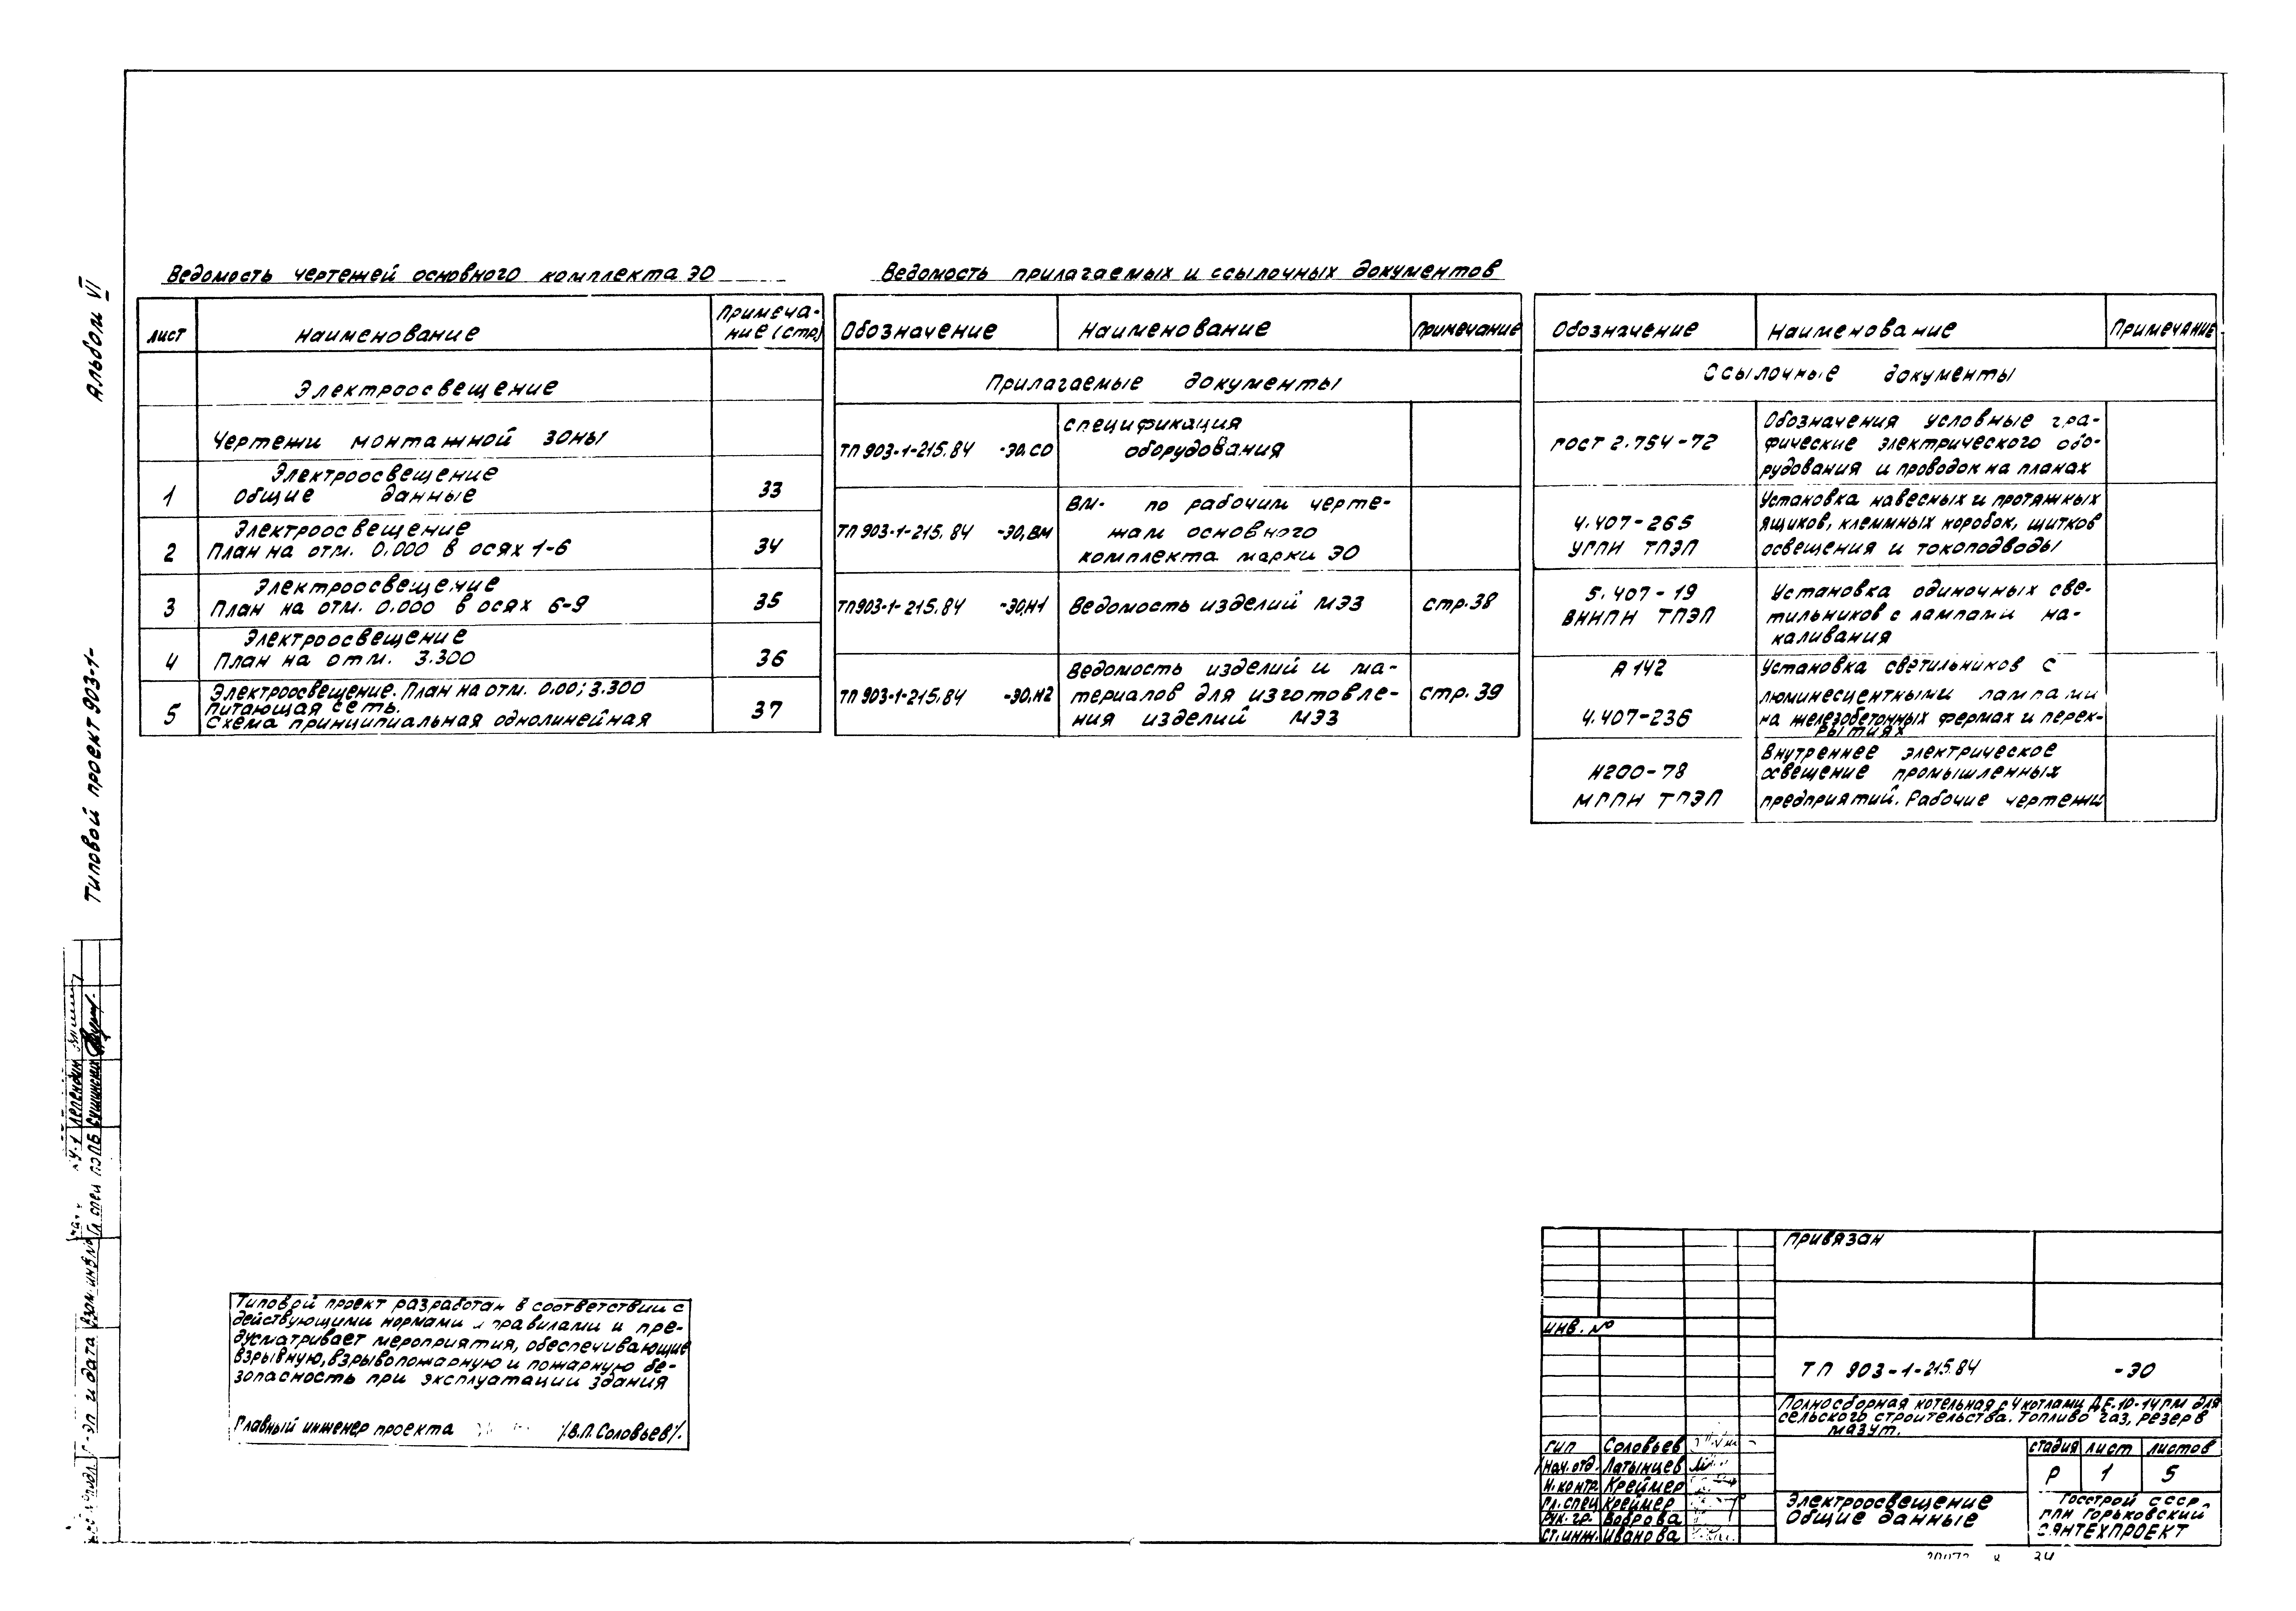 Альбом VI
Типовой проект 903-1-
Ведомость чертежей основного комплекта ЭО
лист
Наименование
Примеча-
ние (стр)
Электроосвещение
Чертежи монтажной зоны
Электроосвещение
1 Общие данные 33
Электроосвещение
2 План на отм. 0.000 в осях 1-6 34
Электроосвещение
3 План на отм. 0.000 в осях 6-9 35
Электроосвещение
4 План на отм. 3.300 36
Электроосвещение. План на отм. 0.00; 3.300
питающая сеть.
5 Схема принципиальная однолинейная 37
Ведомость прилагаемых и ссылочных документов
Обозначение Наименование Примечание
Прилагаемые документы
спецификация
ТП 903-1-215.84 -ЭО.СО оборудования
ВМ- по рабочим черте-
ТП 903-1-215.84 -ЭО,ВМ жам основного
комплекта марки ЭО
ТП903-1-215.84 -ЭО,И1 Ведомость изделий МЭЗ стр.38
Ведомость изделий и ма-
ТП 903-1-215.84 -ЭО,И2 териалов для изготовле- стр. 39
ния изделий МЭЗ
Обозначение Наименование Примечание
Ссылочные документы
Обозначения условные гра-
ГОСТ 2.754-72 фические электрического обо-
рудования и проводок на планах
Установка навесных и протяжных
4.407-265 ящиков, клеммных коробок, щитков
УГПИ ТПЭП освещения и токоподводы
5.407-19 Установка одиночных све-
ВНИПИ ТПЭП тильников с лампами на-
каливания
А 142 Установка светильников с
люминесцентными лампами
4.407-236 на железобетонных фермах и перек-
рытиях
Внутреннее электрическое
И200-78 освещение промышленных
МГПИ ТПЭП предприятий. Рабочие чертежи
Типовой проект разработан в соответствии с
действующими нормами и правилами и пре-
дусматривает мероприятия, обеспечивающие
взрывную, взрывопожарную и пожарную бе-
зопасность при эксплуатации здания
Главный инженер проекта /В.П.Соловьев/.
Привязан
инв. №
ТП 903-1-215.84 -ЭО
Полносборная котельная с 4 котлами ДЕ-10-14ГМ для
сельского строительства. Топливо газ, резерв
мазут.
ГИП Соловьев
Нач. отд. Латынцев
Н.контр. Креймер
Гл.спец Креймер
Рук.гр. Боброва
Ст.инж. Иванова
стадия лист листов
Р 1 5
Электроосвещение
Общие данные
Госстрой СССР
ГПИ Горьковский
САНТЕХПРОЕКТ
Гл спец ПЭПБ Сушинских
Взам. инв №
дата
34